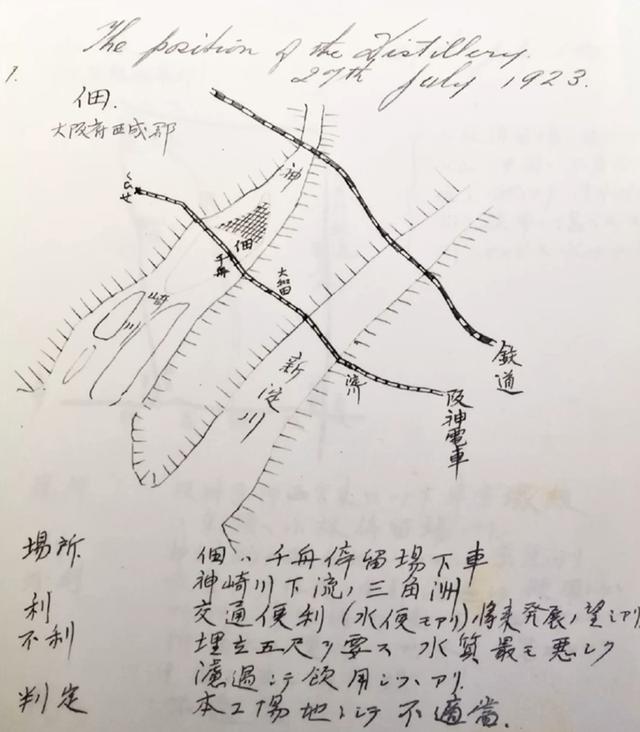 The position of the Distillery.
27th July 1923.
1.
佃.
大阪府西成郡
神
崎
川
佃
千舟
大和田
新淀川
鉄道
阪神電車
場所 佃ハ千舟停留場下車
神崎川下流ノ三角洲
利 交通便利(水便モアリ)将来発展ノ望アリ
不利 埋立五尺ヲ要ス 水質最モ悪シク
濾過シテ飲用シツヽアリ
判定 本工場地トシテ不適当.